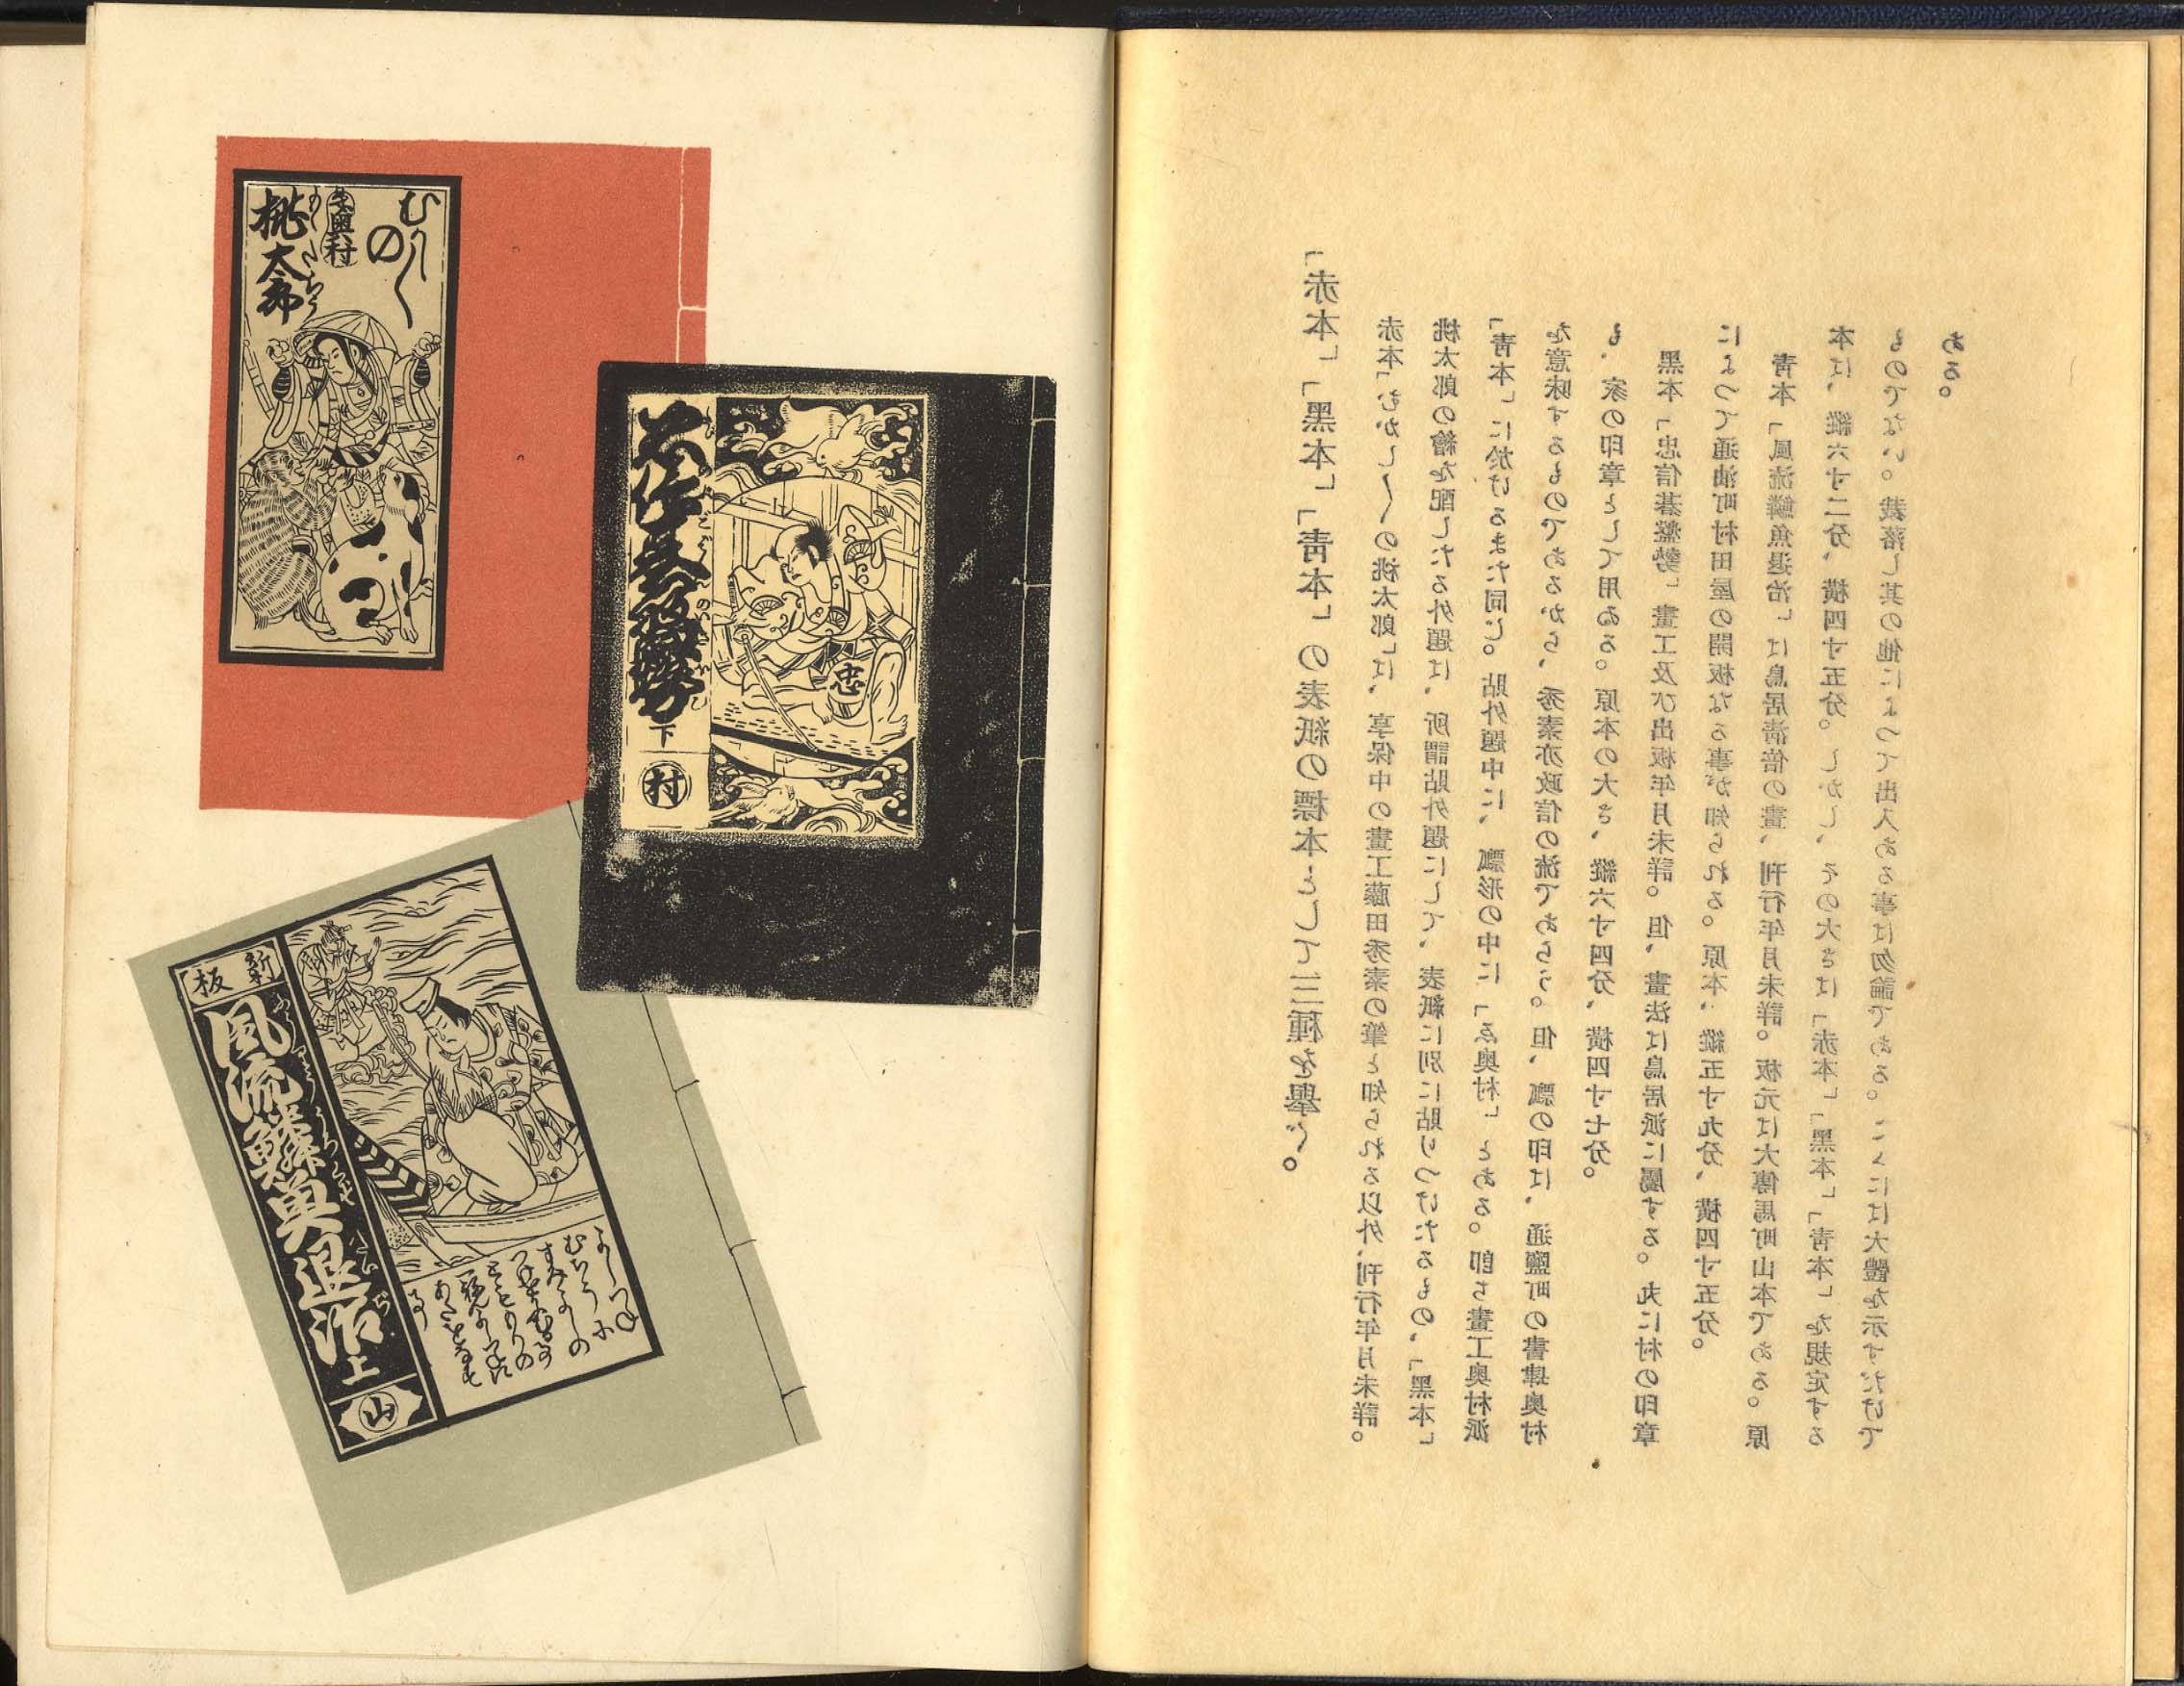 「赤本」「黒本」「青本」の表紙の標本として三種を擧ぐ。
赤本「むかし〱の桃太郎」は、享保中の畫工藤田秀素の筆と知られる以外、刊行年月未詳。
桃太郎の繪を配したる外題は、所謂貼外題にして、表紙に別に貼りつけたるもの、「黒本」
「青本」に於けるまた同じ。貼外題中に、瓢形の中に「ゑ奥村」とある。卽ち畫工奥村派
を意味するものであるから、秀素亦政信の流であらう。但、瓢の印は、通鹽町の書肆奥村
も、家の印章として用ゐる。原本の大さ、縱六寸四分、横四寸七分。
黒本「忠信碁盤勢」畫工及び出板年月未詳。但、畫法は鳥居派に屬する。丸に村の印章
によつて通油町村田屋の開板なる事が知られる。原本、縱五寸九分、横四寸五分。
青本「風流鱗魚退治」は鳥居淸倍の畫、刊行年月未詳。板元は大傳馬町山本である。原
本は、縱六寸二分、横四寸五分。しかし、その大さは「赤本」「黒本」「青本」を規定する
ものでない。裁落し其の他によつて出入ある事は勿論である。こゝには大體を示すだけで
ある。
むかし〱
の
ゑ奥村
桃太郎
忠
下
村
新板
風流鱗魚退治
上
山